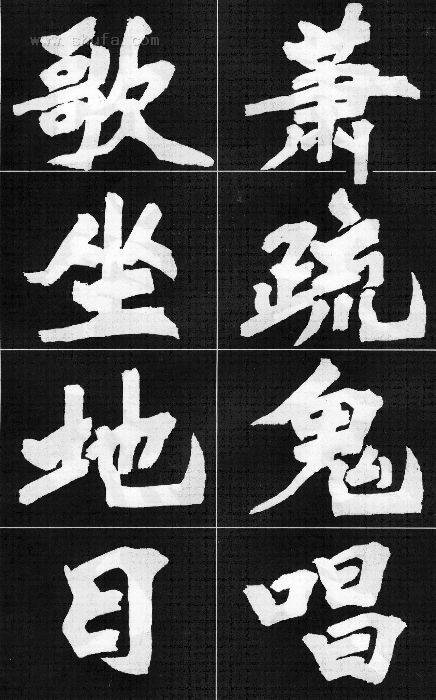 蕭疏鬼唱
歌坐地日
www.shufa.com